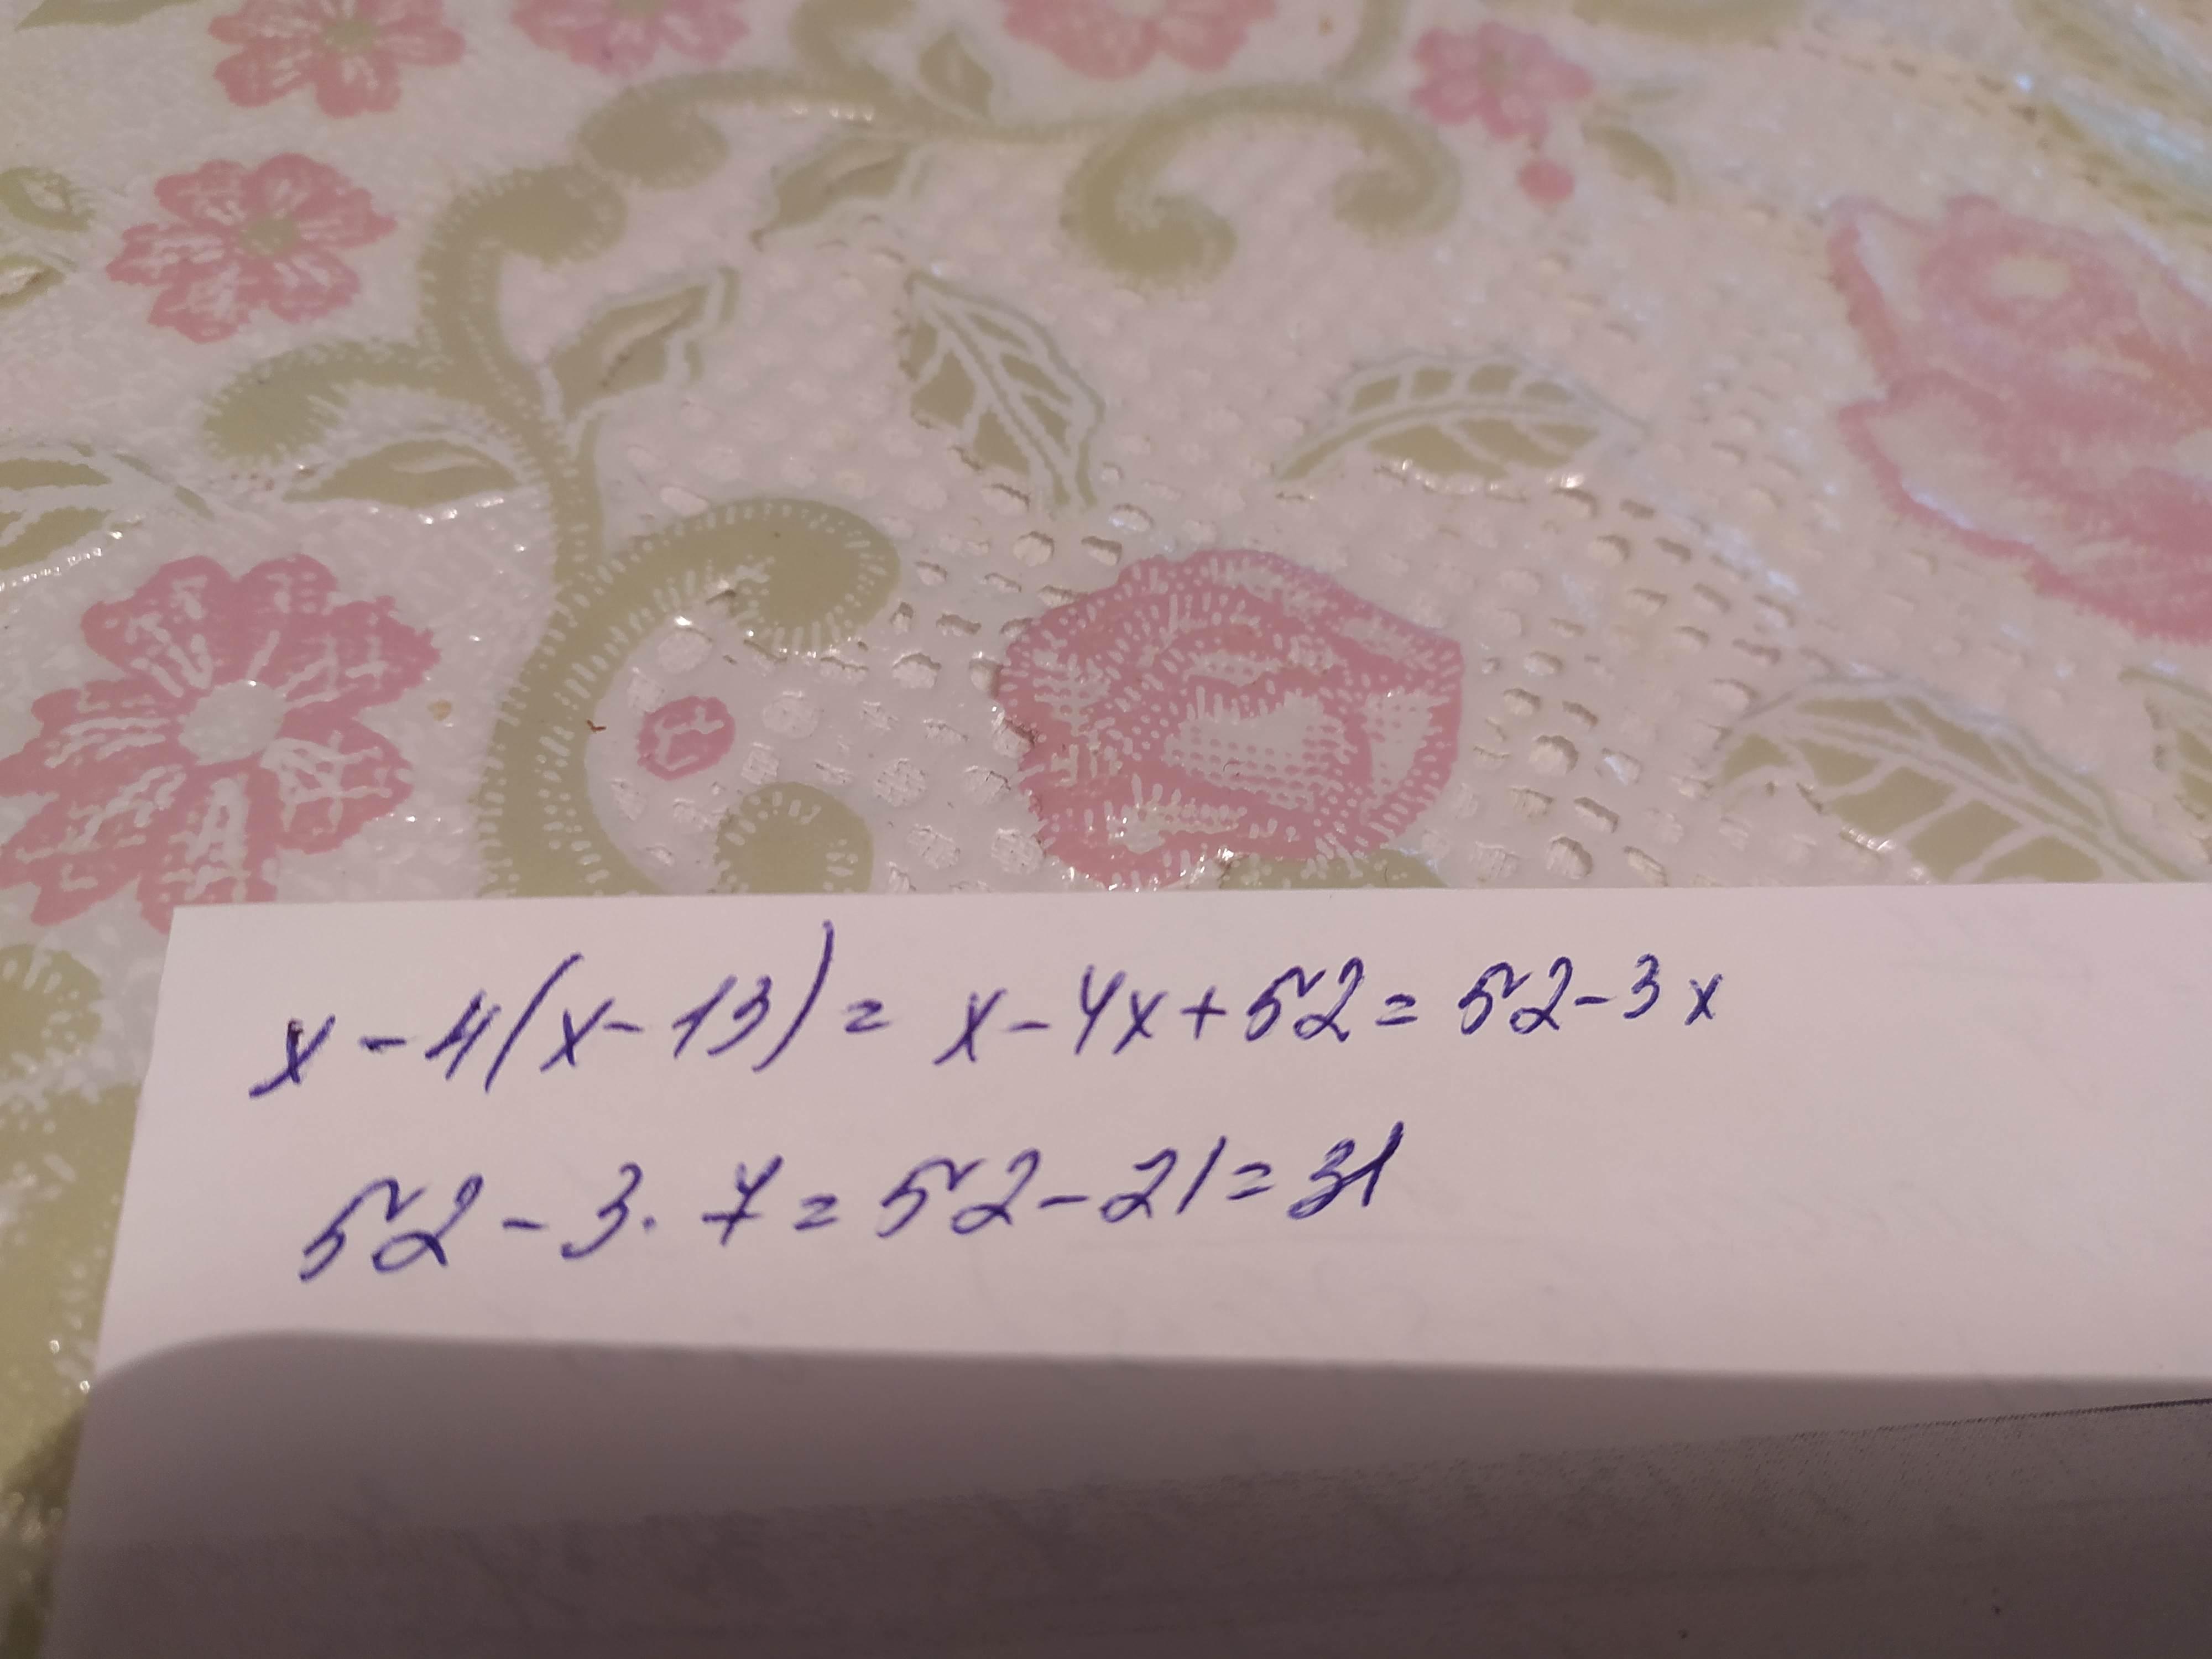 x - 4(x - 13) = x - 4x + 52 = 52 - 3x
52 - 3 · 7 = 52 - 21 = 31